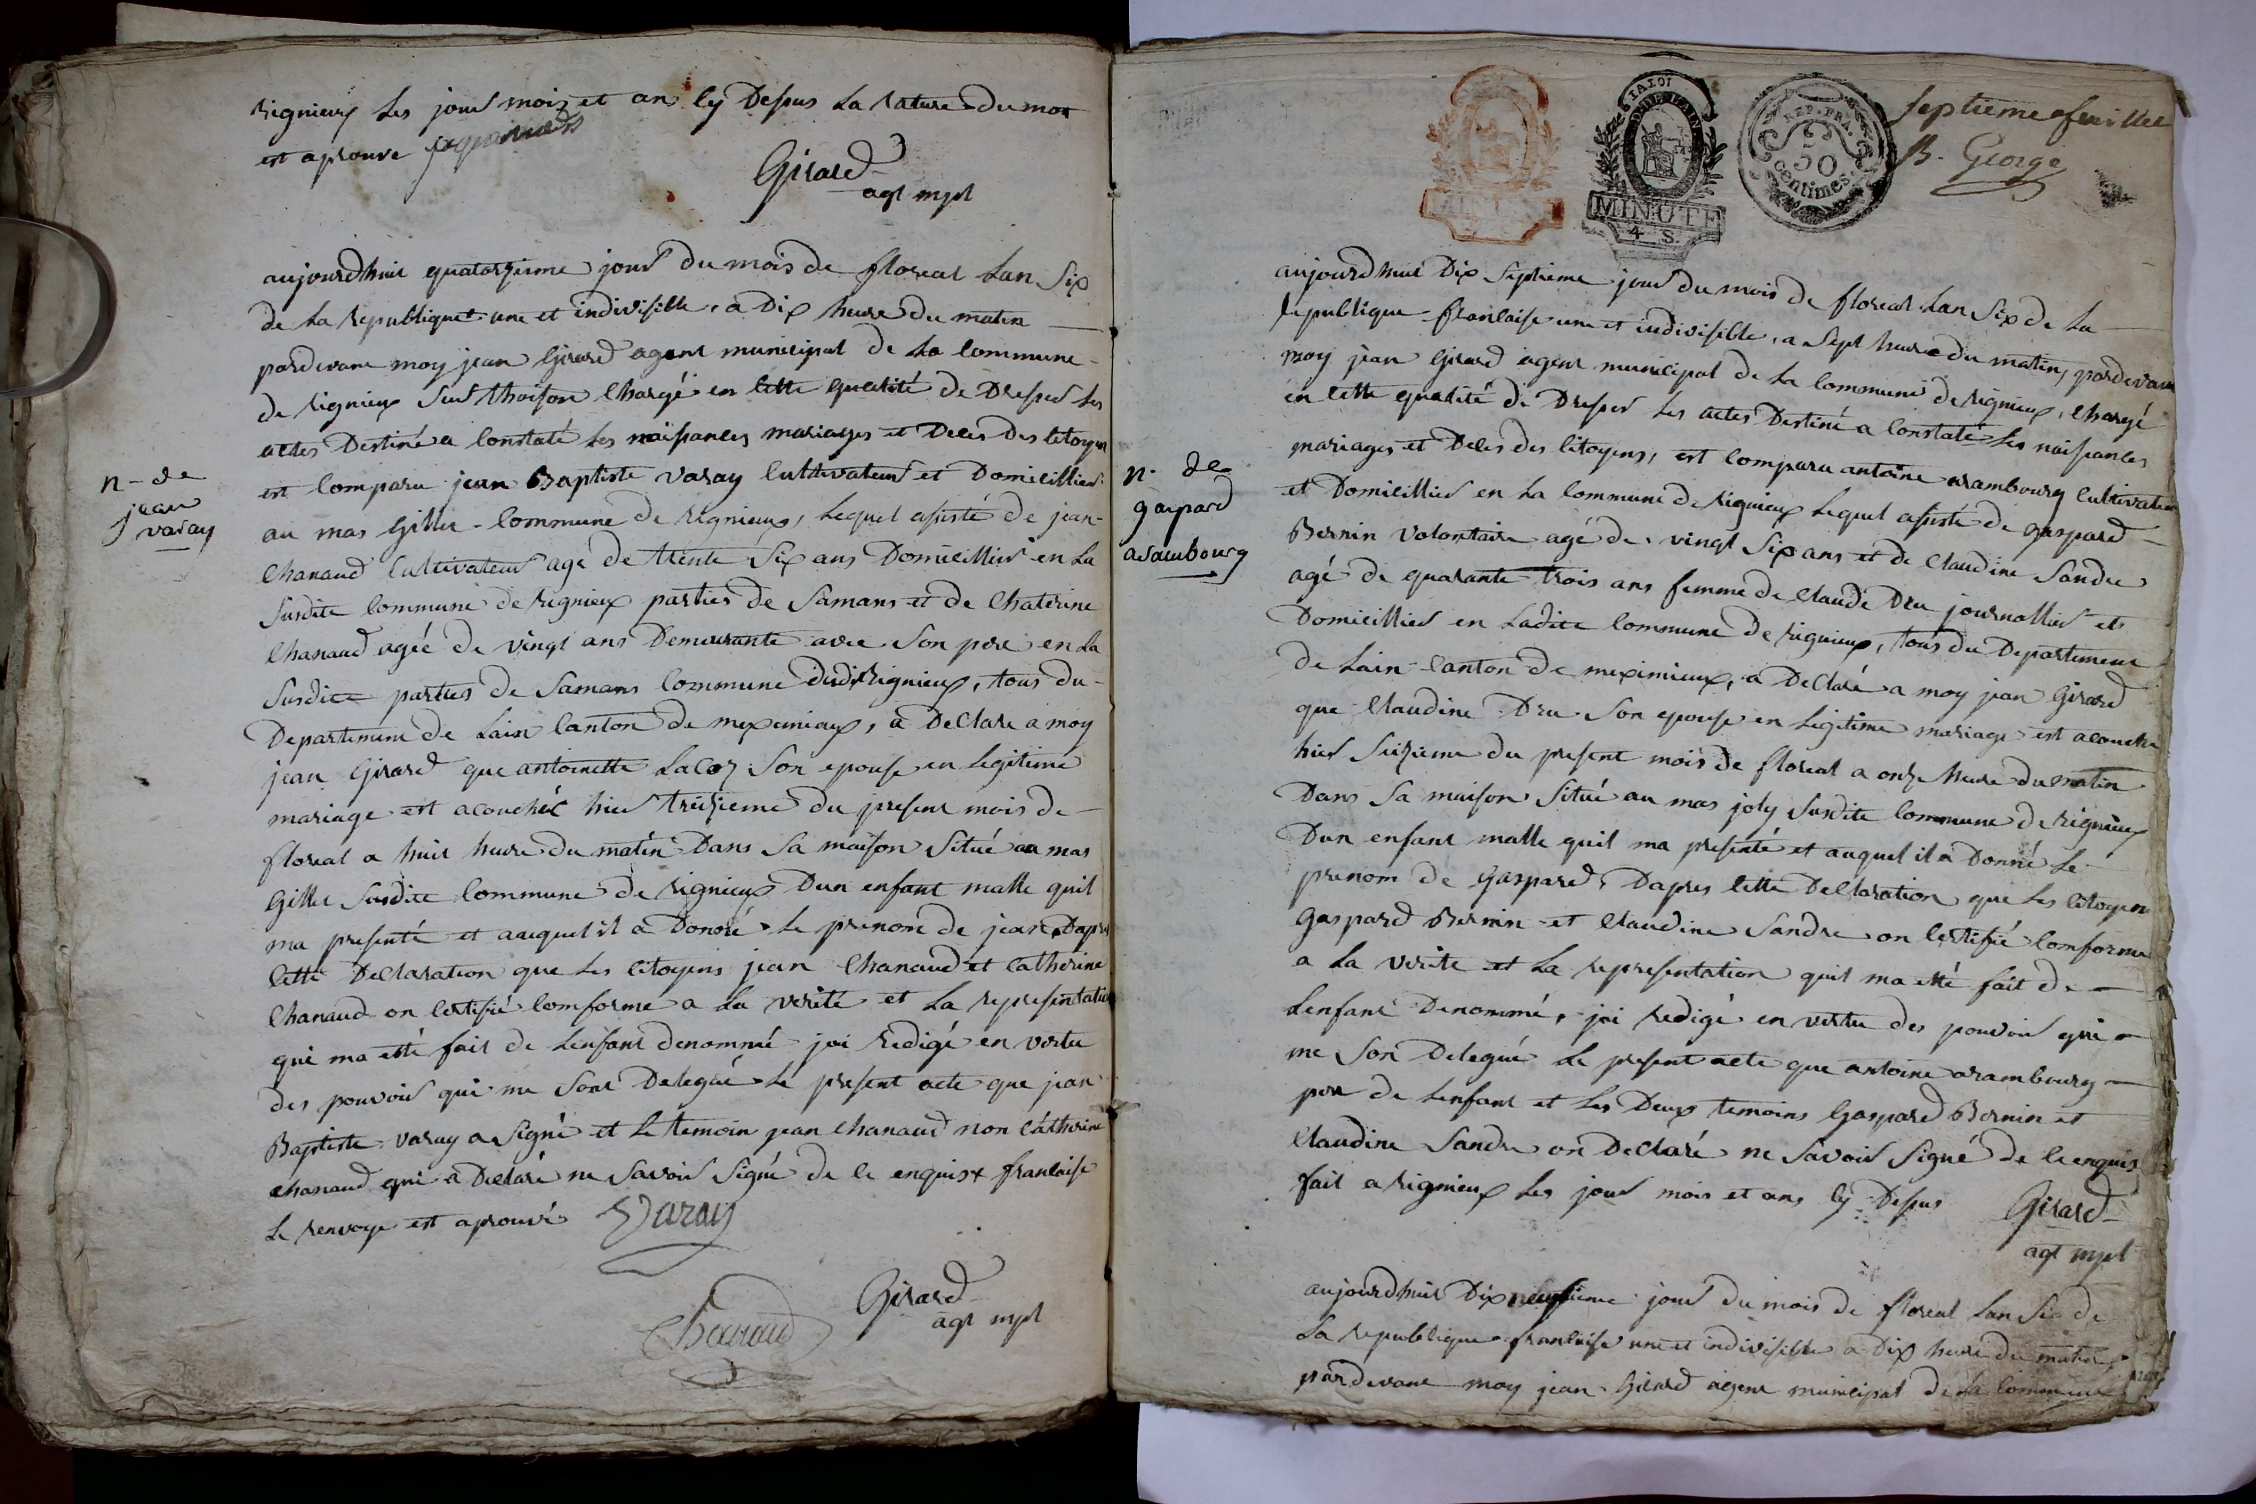 rignieux les jour mois et an cy Dessus la rature du mot
est aprouve
Girard
agt mpl
n - de
jean
varay
aujourdhuit quatorzieme jour du mois de floreal lan Six
de la republique une et indivisible, a Dix heure du matin
pardevant moy jean Girard agent municipal de la Commune
de rignieux sur Choison Chargé en cette qualité de Dresser les
actes Destiné a Constaté les naissances mariages et Deces des Citoyen
est Comparu jean Baptiste varay Cultivateur et Domicillier
au mas Gillet Commune de rignieux, lequel assisté de jean
Chanaud Cultivateur age de trente Six ans Domicillier en la
susdite Commune de rignieux parties de Samans et de Chaterine
Chanaud agée de vingt ans Demeurante avec Son pere en la
Susdite parties de Samans Commune dudit rignieux, tous du
Departement de Lain Canton de meximieux, a Declare a moy
jean Girard que antoinette Lacoz Son epouse en legitime
mariage est acouchéé hier treizieme du present mois de
floreal a huit heure du matin Dans Sa maison Situé au mas
Gillet Susdite Commune de rignieux Dun enfant malle quil
ma presenté et auquel il a Donné le prenom de jean Dapres
cette Declaration que les Citoyens jean Chanaud et Catherine
Chanaud on Certifié Comforme a la verité et la representation
qui ma etté fait de Lenfant denommé jai redigé en vertu
des pouvoir qui me Sont Delegué le present acte que jean
Baptiste varay a Signé et le temoin jean Chanaud non Catherine
Chanaud qui a Declaré ne Savoir Signé de ce enquis + francaise
le renvoye est aprouvé Varay
Girard
agt mpl
Chanaud
MINUTE
4 S.
REP. FRA.
50
Centimes.
Septieme feuillet
B. George
n - de
gaspard
arambourg
aujourdhuit Dix Septieme jour du mois de floreal Lan Six de La
republique francaise une et indivisible, a Sept heure du matin, pardevant
moy jean Girard agent municipal de La Commune de rignieux, Chargé
en cette qualité de Dresser les actes Destiné a Constaté les naissances
mariages et Deces des Citoyens, est Comparu antoine arambourg Cultivateur
et Domicillier en La Commune de rignieux lequel assisté de gaspard
Bernin volontaire agé de vingt Six ans et de Claudine Sandre
agé de quarante trois ans femme de Claude Dru journallier et
Domicillier en Ladite Commune de rignieux, tous du Departement
de Lain Canton de meximieux, a Declaré a moy jean Girard
que Claudine Dru Son epouse en legitime mariage est acouché
hier Seizieme du present mois de floreal a onze heure du matin
Dans Sa maison Situé au mas joly Susdite Commune de rignieux
Dun enfant malle quil ma presenté et auquel il a Donné Le
prenom de Gaspard, Dapres cette Declaration que les Citoyen
Gaspard Bernin et Claudine Sandre on Certifié Comforme
a la verite et la representation quil ma etté fait de
Lenfant Denommé, jai redigé en vertu des pouvoir qui
me Son Delegué le present acte que antoine arambourg
pere de Lenfant et les Deux temoins Gaspard Bernin et
Claudine Sandre on Declaré ne Savoir Signé de ce enquis
fait a rignieux les jour mois et ans cy Dessus
Girard
agt mpl
aujourdhuit Dix neufieme jour du mois de floreal Lan Six de
La republique francaise une et indivisible a Dix heure du matin
pardevant moy jean Girard agent municipal de La Commune